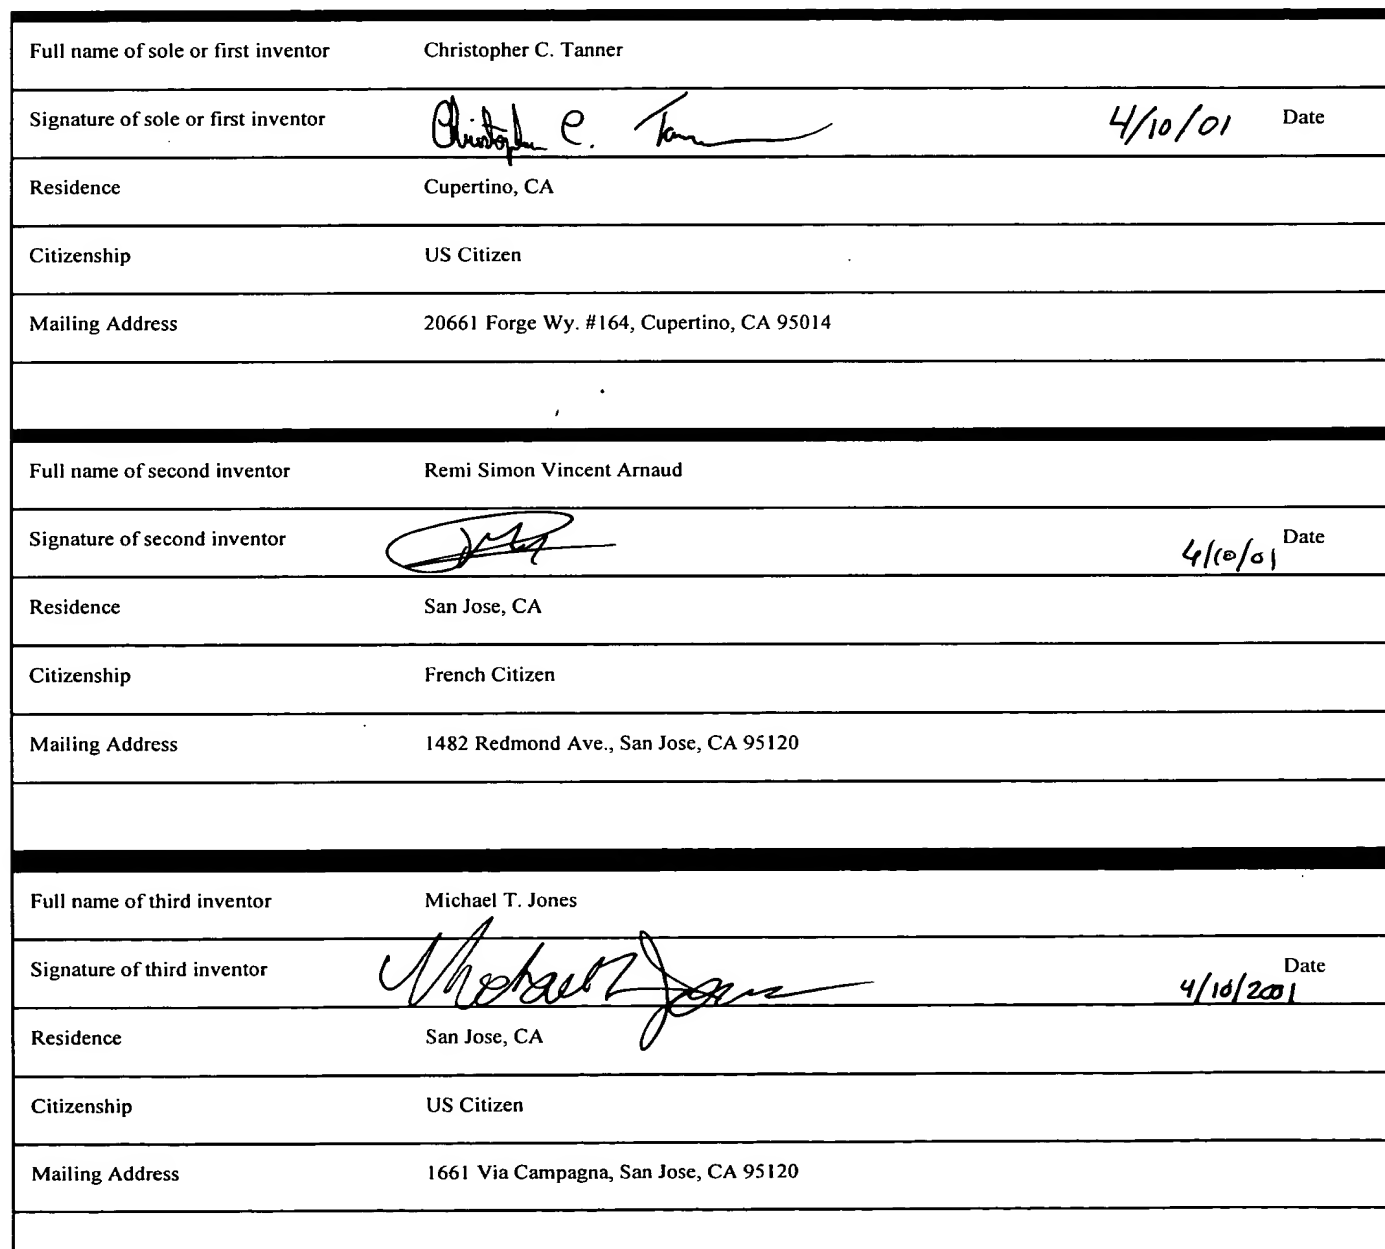 Full name of sole or first inventor Christopher C. Tanner
Signature of sole or first inventor Christopher C. Tanner 4/10/01 Date
Residence Cupertino, CA
Citizenship US Citizen
Mailing Address 20661 Forge Wy. #164, Cupertino, CA 95014
Full name of second inventor Remi Simon Vincent Arnaud
Signature of second inventor 4/10/01 Date
Residence San Jose, CA
Citizenship French Citizen
Mailing Address 1482 Redmond Ave., San Jose, CA 95120
Full name of third inventor Michael T. Jones
Signature of third inventor Michael T Jones 4/10/2001 Date
Residence San Jose, CA
Citizenship US Citizen
Mailing Address 1661 Via Campagna, San Jose, CA 95120